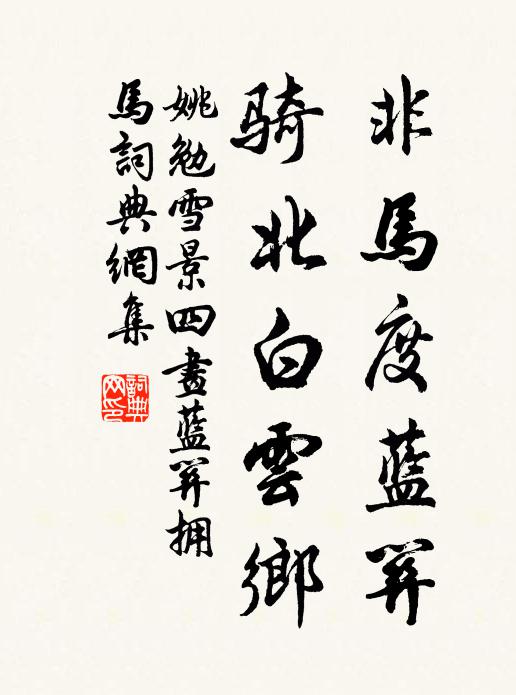 非馬度藍关
騎北白雲鄉
姚勉雪景四畫藍关拥
馬詞典網集
詞典
网印